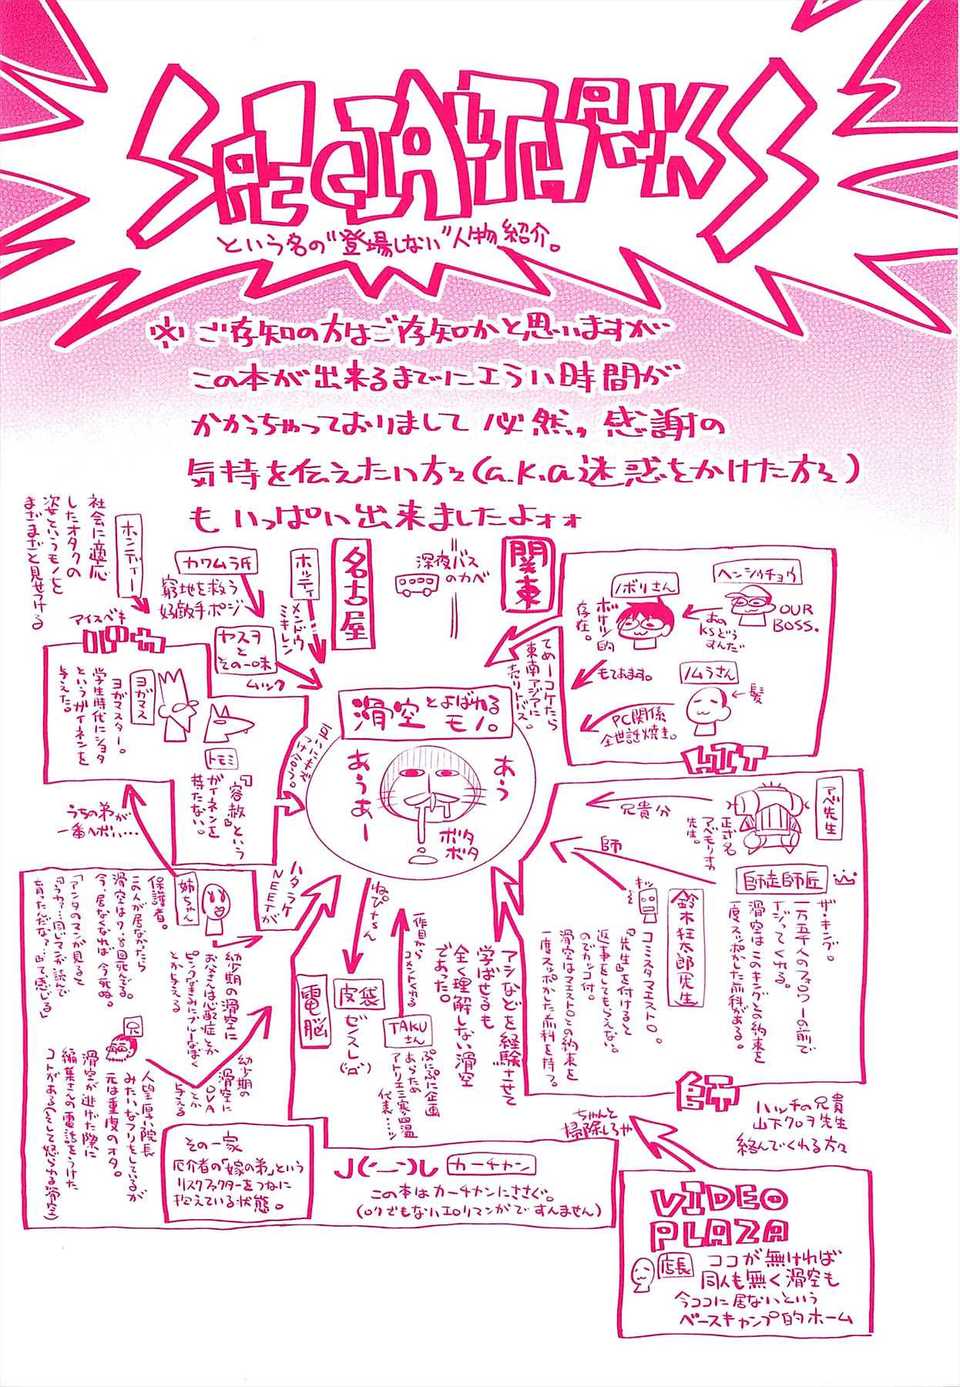 SPECIAL THANKS
という名の"登場しない"人物紹介。
※ご存知の方はご存知かと思いますが
この本が出来るまでにエラい時間が
かかっちゃっておりまして必然、感謝の
気持を伝えたい方々(a.k.a迷惑をかけた方々)
も いっぱい出来ましたよォォ
関東
ヘンシュウチョウ
OUR
BOSS.
ノボリさん
存在。
もておます。
ノムラさん
髪
PC関係
全世話焼き。
てめーコケたら
東南アジアに
売りトバス。
深夜バス
のカベ
名古屋
ホッティ
メンドウ
ミキレン
カワムラ氏
窮地を救う
好敵手ポジ
ヤスヲ
とその一味
ムック
ホンディー
社会に適応
したオタクの
姿というモノを
まざまざと見せつける
アイスベキ
ヨガマス
ヨガマスター。
学生時代にショタ
というガイネンを
与えた。
トモミ
『容赦』という
ガイネンを
持たない。
滑空とよばれる
モノ。
あう
あうあー
ボタ
ボタ
うちの弟が
一番ヘボい…
アベ先生
正式名
アベモリオカ
先生。
兄貴分
師
師走師匠
ザ・キング。
一万五千人のフォロワーの前で
ドゲってくれる。
滑空はこのキングとの約束を
一度スッポかした前科がある。
鈴木狂太郎先生
コミスタマエストロ。
『先生』を付けると
返事をしてもらえない
のでカッコ付。
滑空はマエストロとの約束を
一度スッポかした前科を持つ。
師
ハッチの兄貴
山下クロヲ先生
絡んでくれる方々
アシなどを経験させて
学ばせるも
全く理解しない滑空
であった。
TAKUさん
一作目から
コメントくれる
ぷにぷに企画
あらため
アトリエ三寒四温
代表…ッ
ねぴちゃん
皮袋
ゼンスレ
電脳
ハタラケ
NEETが
姉ちゃん
保護者。
この人が居なかったら
滑空は7、8回死んでる。
今、居なくなれば今死ぬ。
「アンタのマンガ見ると
幼少期の滑空に
お父さんは心配症とか
とか与える
兄
幼少期の
滑空に
OVA
とか
与える
人望厚い院長
みたいなフリをしているが
元は重度のオタ。
滑空が逃げた際に
編集さんの電話をうけた
コトがある(そして怒られる滑空)
その一家
厄介者の「嫁の弟」という
リスクファクターをつねに
抱えている状態。
J(-__-)し カーチャン
この本はカーチャンにささぐ。
(ロクでもないエロマンガですんません)
ちゃんと
掃除しろや
VIDEO
PLAZA
店長
ココが無ければ
同人も無く滑空も
今ココに居ないという
ベースキャンプ的ホーム